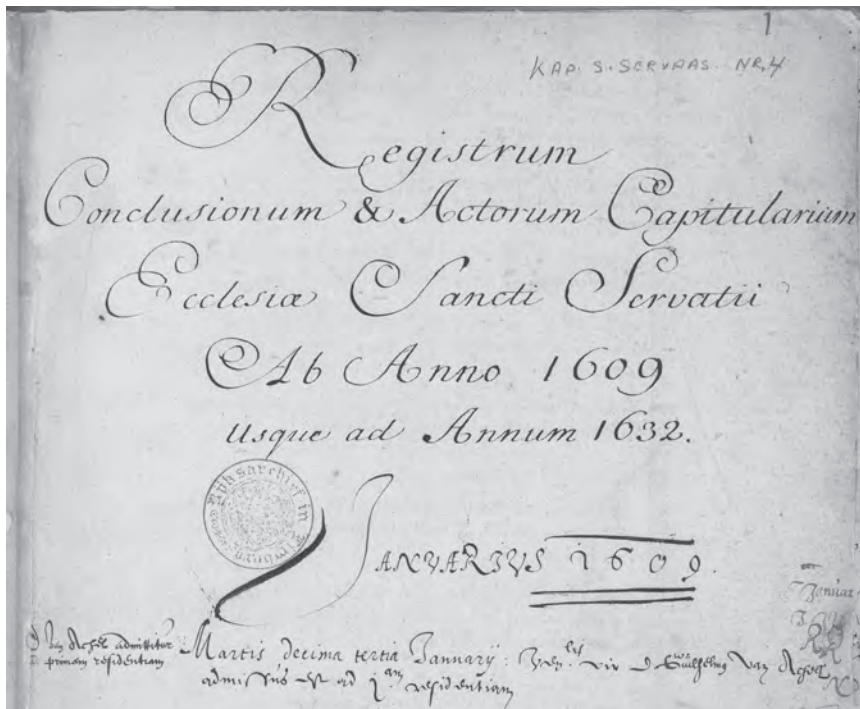 1
KAP. S. SERVAAS. NR. 4
Registrum
Conclusionum & Actorum Capitularium
Ecclesiæ Sancti Servatii
Ab Anno 1609
Usque ad Annum 1632.
Rijksarchief in Limburg
JANVARIVS 1609.
Januar
D van Achel admittitur
primam residentiam
Martis decima tertia Januarij: vir D Guilhelmus van Achel
admissus est ad 1am residentiam